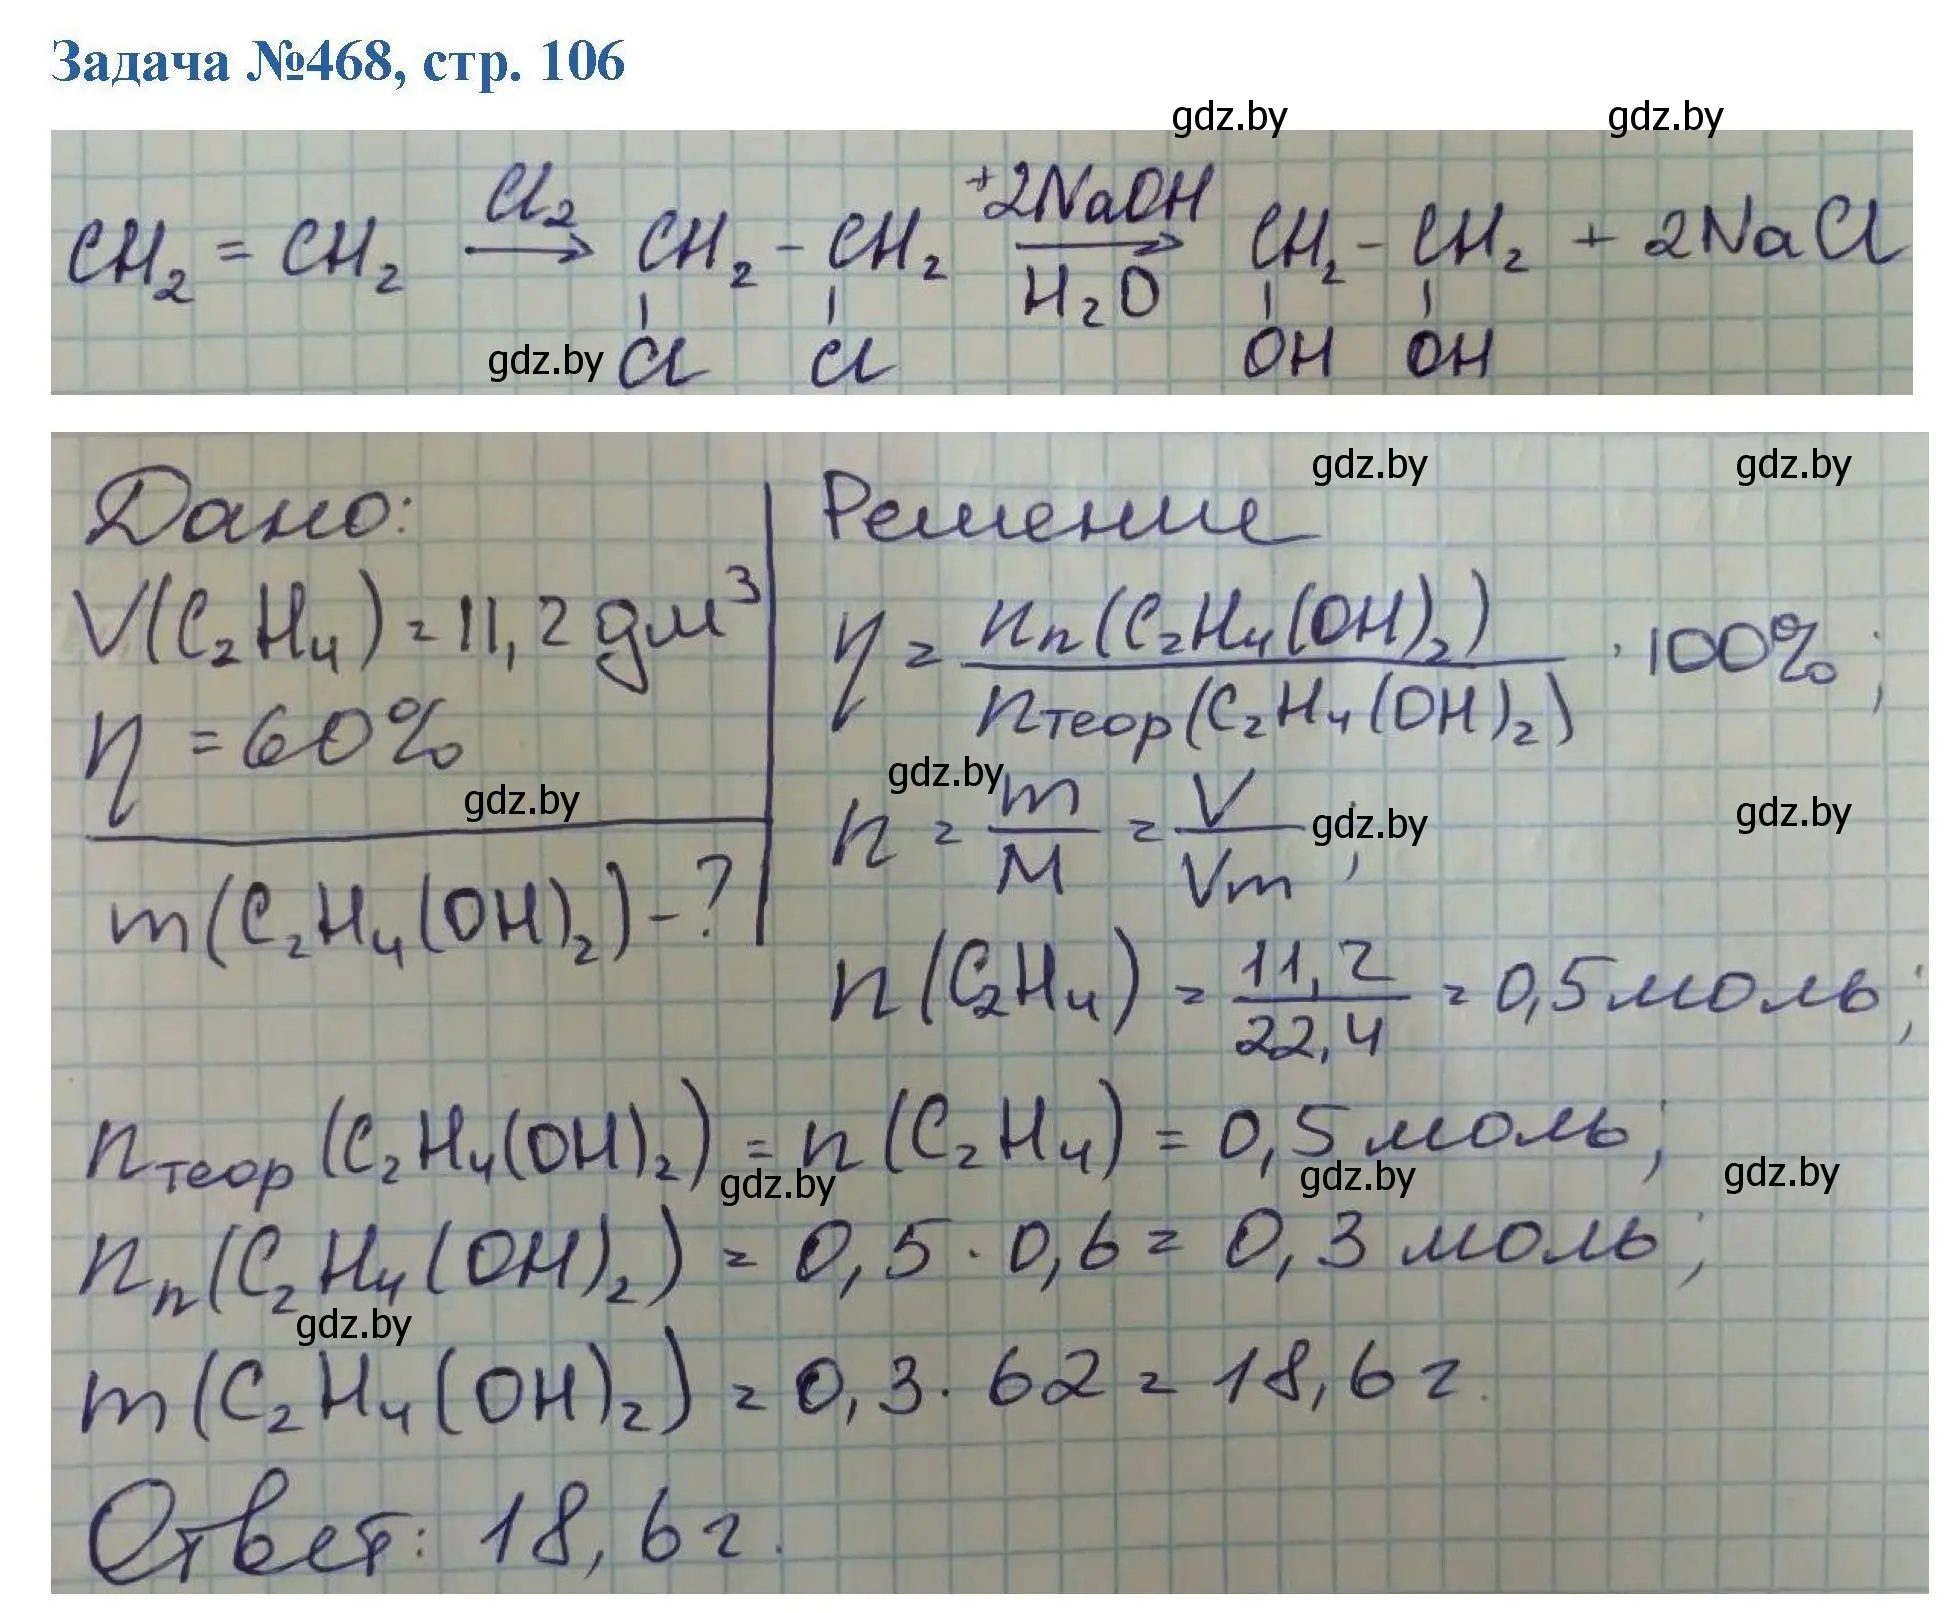 Задача №468, стр. 106
gdz.by gdz.by
CH₂ = CH₂ —Cl₂→ CH₂ - CH₂ —+2NaOH / H₂O→ CH₂ - CH₂ + 2NaCl
Cl Cl OH OH
gdz.by
Дано:
V(C₂H₄) = 11,2 дм³
η = 60%
gdz.by
m(C₂H₄(OH)₂) - ?
Решение
gdz.by gdz.by
η = nп(C₂H₄(OH)₂) / nтеор(C₂H₄(OH)₂) · 100%;
gdz.by
n = m/M = V/Vm;
gdz.by gdz.by
n(C₂H₄) = 11,2/22,4 = 0,5 моль;
nтеор(C₂H₄(OH)₂) = n(C₂H₄) = 0,5 моль;
gdz.by gdz.by gdz.by
nп(C₂H₄(OH)₂) = 0,5 · 0,6 = 0,3 моль;
gdz.by
m(C₂H₄(OH)₂) = 0,3 · 62 = 18,6 г.
Ответ: 18,6 г.